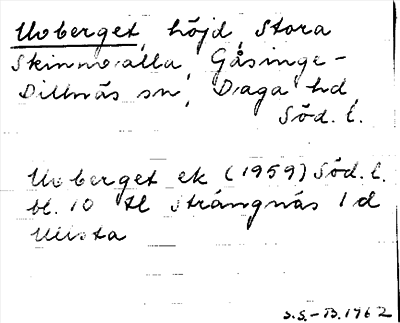 Uvberget, höjd, Stora
Skinnvalla, Gåsinge-
Dillnäs sn, Daga hd,
Söd. l.
Uvberget ek (1959) Söd. l.
bl. 10 tl Strängnäs 1 d
S.S.-B. 1962